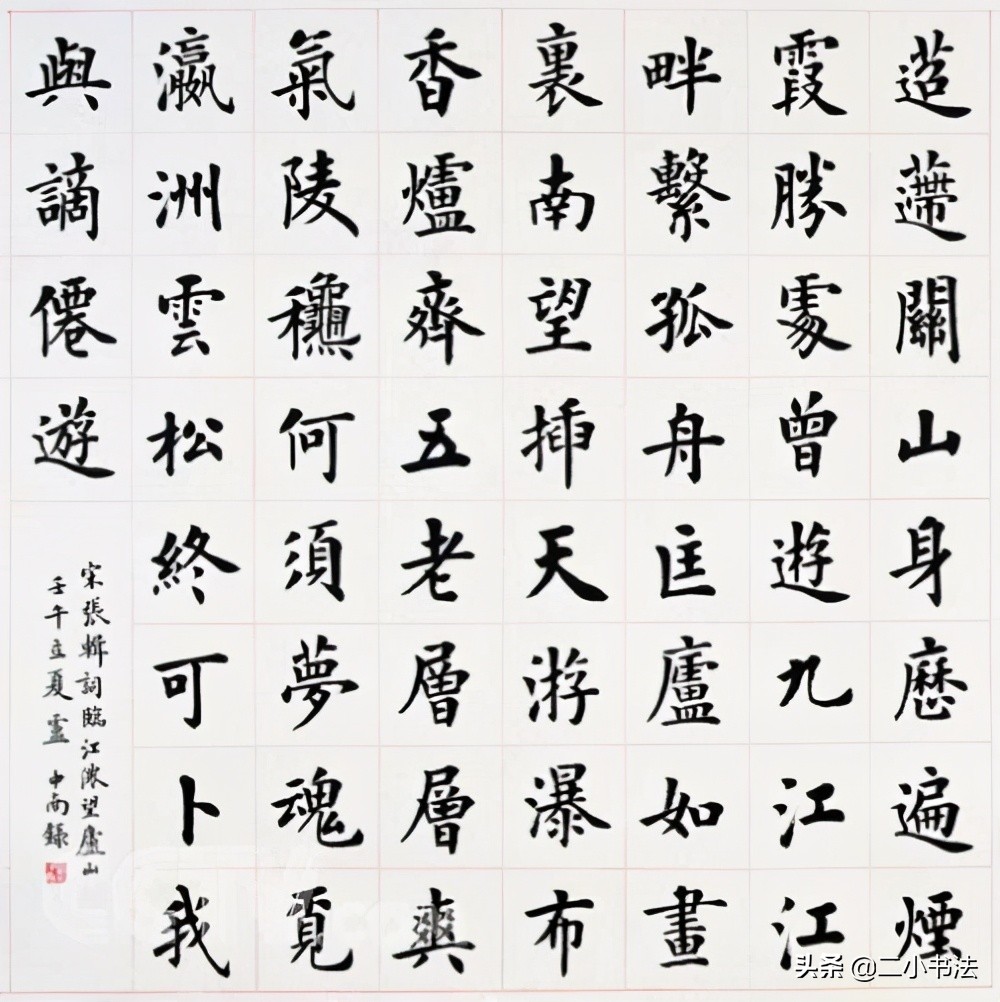 迢遰關山身歷遍煙
霞勝處曾遊九江江
畔繫孤舟匡廬如畫
裏南望插天游瀑布
香爐齊五老層層爽
氣陵龝何須夢魂覓
瀛洲雲松終可卜我
與謫僊遊
宋張輯詞臨江僊望廬山
壬午立夏盧中南錄
头条 @二小书法